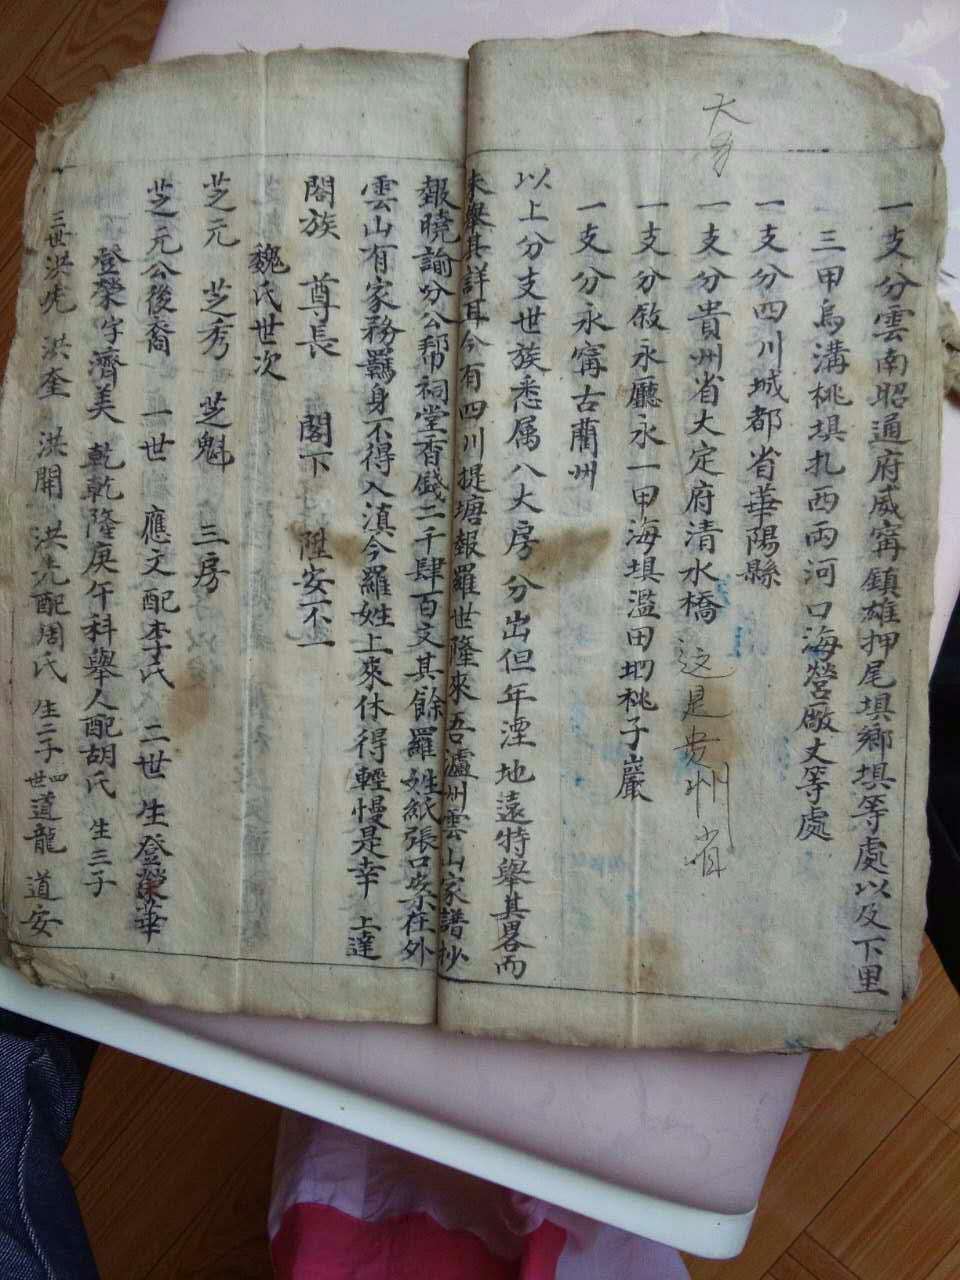 大方
一支分雲南昭通府威寗鎮雄押尾填鄉填等處以及下里
三甲烏溝桃填扎西兩河口海營廠丈等處
一支分四川城都省華陽縣
一支分貴州省大定府清水橋 这是贵州省
一支分敘永廳永一甲海填濫田垇桃子巖
一支分永寗古藺州
以上分支世族悉属八大房分出但年湮地遠特舉其畧而
未舉其詳耳今有四川提塘報羅世隆來吾瀘州雲山家譜抄
報曉諭分公幇祠堂香錢二千肆百文其餘羅姓紙張口岺在外
雲山有家務羈身不得入滇今羅姓上來休得輕慢是幸 上達
閤族 尊長 閣下 陞安不一
魏氏世次
芝元 芝秀 芝魁 三房
芝元公後裔 一世 應文配李氏 二世生登榮華
登榮字濟美 乾隆庚午科舉人配胡氏 生三子
三世洪 洪奎 洪開 洪 配周氏 生二子 四世道龍 道安